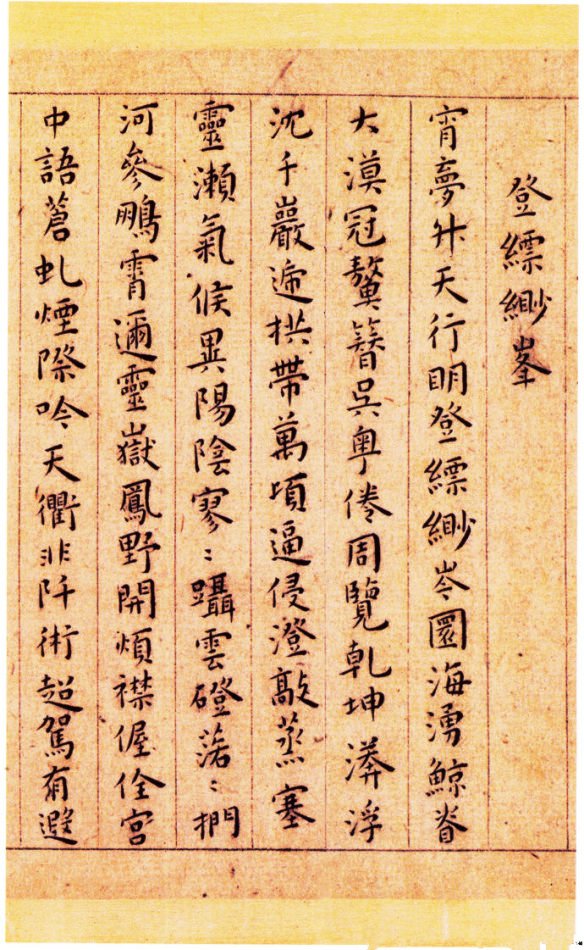 登縹緲峯
宵夢升天行明登縹緲岑圜海湧鯨脊
大漠冠鼇簪吳粵倦周覽乾坤漭浮
沈千巖遞拱帶萬頃逼侵澄敲蒸塞
靈瀨氣候異陽陰寥〻躡雲磴落〻捫
河參鵬霄邇靈嶽鳳野開煩襟偓佺宮
中語蒼虬煙際吟天衢非阡術超駕有避